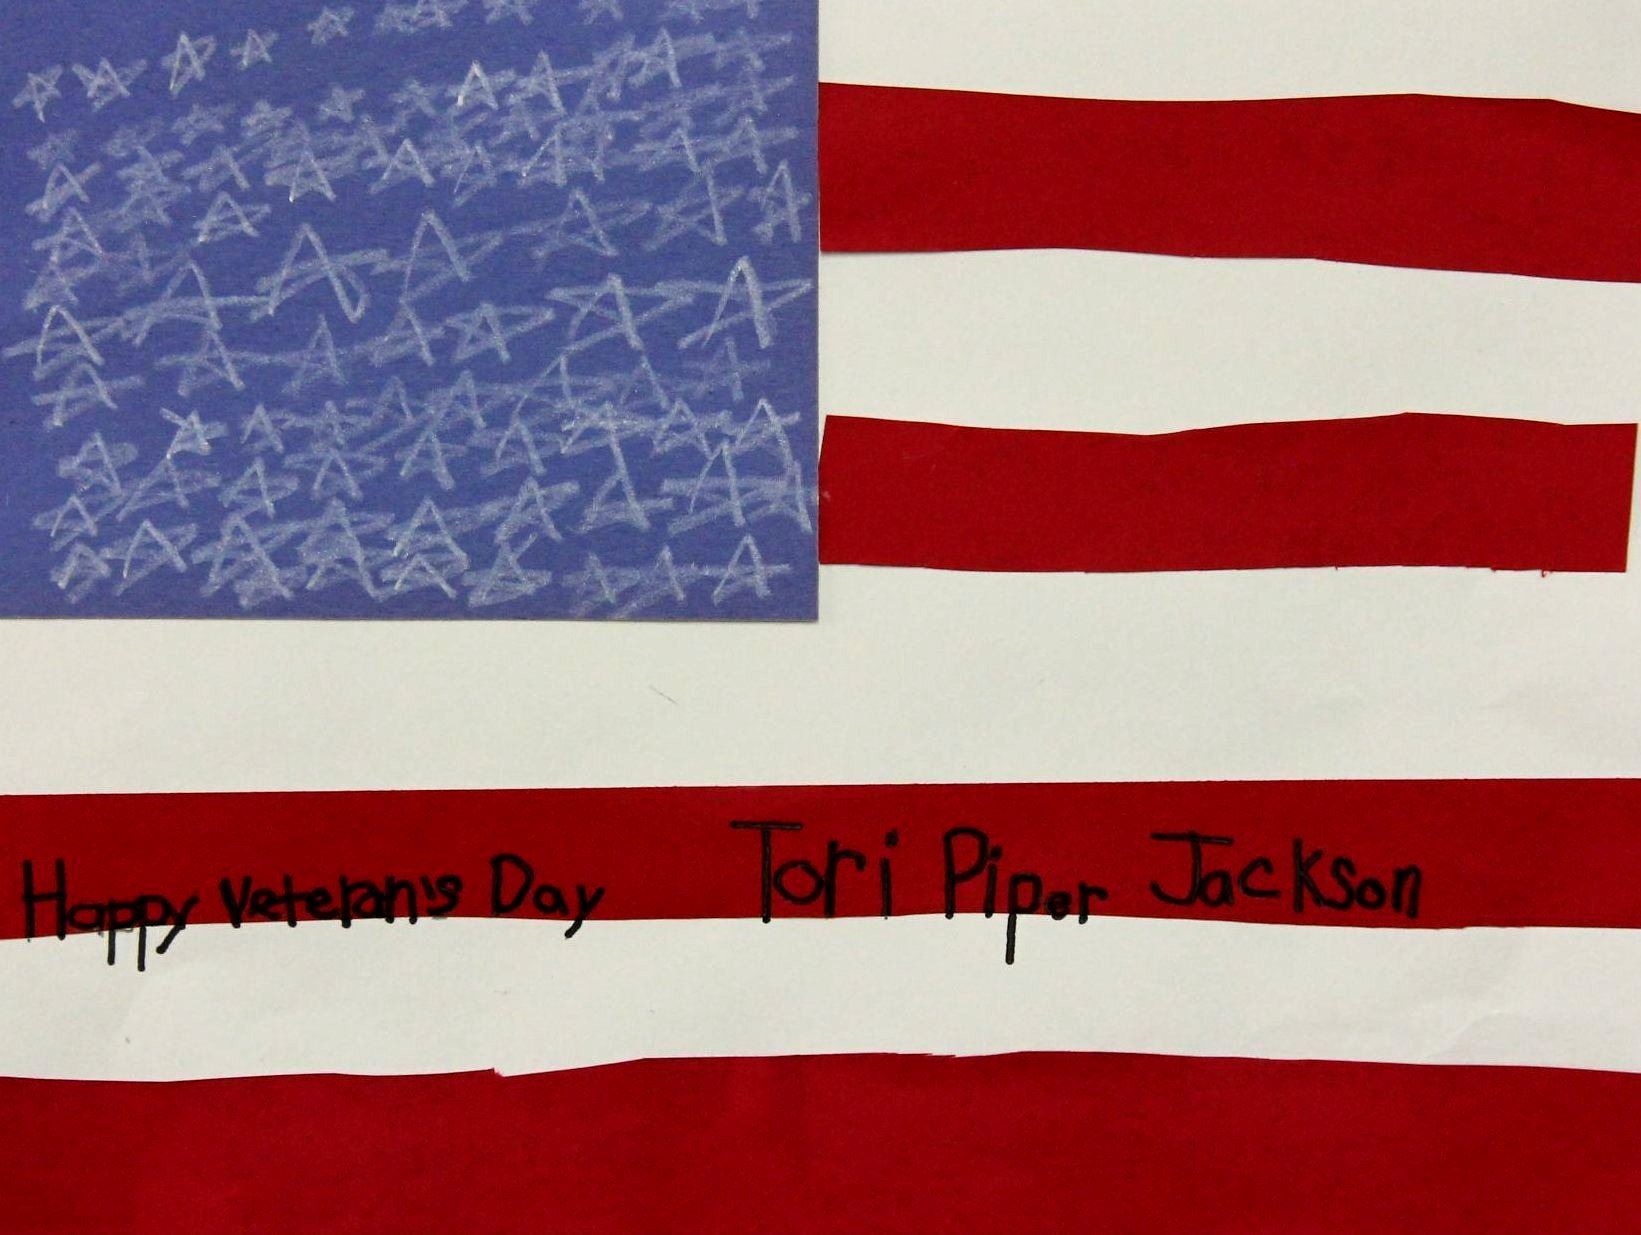 Happy Veteran's Day Tori Piper Jackson